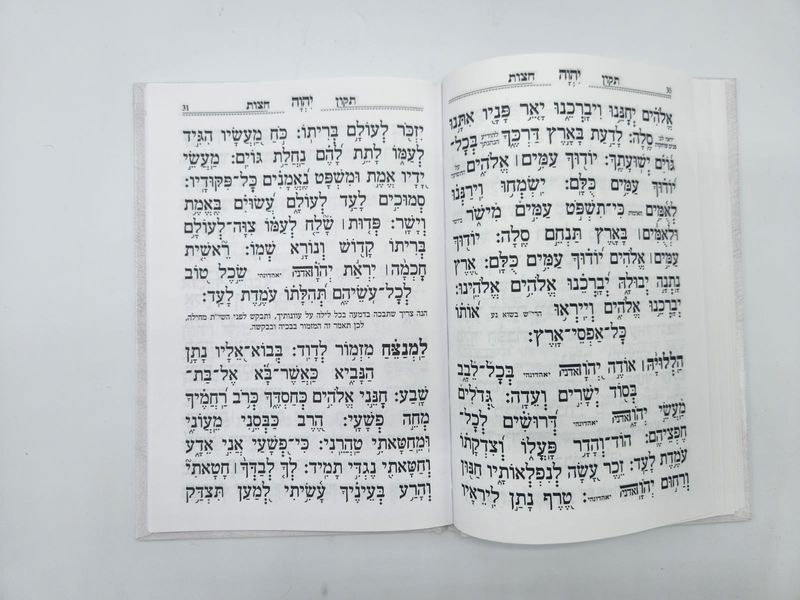 30
תקון יְהֹוָה חצות
אֱלֹהִים יְחָנֵּנוּ וִיבָרְכֵנוּ יָאֵר פָּנָיו אִתָּנוּ
סֶלָה: לָדַעַת בָּאָרֶץ דַּרְכֶּךָ בְּכָל־
גּוֹיִם יְשׁוּעָתֶךָ: יוֹדוּךָ עַמִּים ׀ אֱלֹהִים
יוֹדוּךָ עַמִּים כֻּלָּם: יִשְׂמְחוּ וִירַנְּנוּ
לְאֻמִּים כִּי־תִשְׁפֹּט עַמִּים מִישֹׁר
וּלְאֻמִּים ׀ בָּאָרֶץ תַּנְחֵם סֶלָה: יוֹדוּךָ
עַמִּים ׀ אֱלֹהִים יוֹדוּךָ עַמִּים כֻּלָּם: אֶרֶץ
נָתְנָה יְבוּלָהּ יְבָרְכֵנוּ אֱלֹהִים אֱלֹהֵינוּ:
יְבָרְכֵנוּ אֱלֹהִים וְיִירְאוּ אוֹתוֹ
כָּל־אַפְסֵי־אָרֶץ:
הַלְלוּיָהּ ׀ אוֹדֶה יְהֹוָה יאהדונהי בְּכָל־לֵבָב
בְּסוֹד יְשָׁרִים וְעֵדָה: גְּדֹלִים
מַעֲשֵׂי יְהֹוָה יאהדונהי דְּרוּשִׁים לְכָל־
חֶפְצֵיהֶם: הוֹד־וְהָדָר פָּעֳלוֹ וְצִדְקָתוֹ
עֹמֶדֶת לָעַד: זֵכֶר עָשָׂה לְנִפְלְאוֹתָיו חַנּוּן
וְרַחוּם יְהֹוָה יאהדונהי: טֶרֶף נָתַן לִירֵאָיו
31
תקון יְהֹוָה חצות
יִזְכֹּר לְעוֹלָם בְּרִיתוֹ: כֹּחַ מַעֲשָׂיו הִגִּיד
לְעַמּוֹ לָתֵת לָהֶם נַחֲלַת גּוֹיִם: מַעֲשֵׂי
יָדָיו אֱמֶת וּמִשְׁפָּט נֶאֱמָנִים כָּל־פִּקּוּדָיו:
סְמוּכִים לָעַד לְעוֹלָם עֲשׂוּיִם בֶּאֱמֶת
וְיָשָׁר: פְּדוּת ׀ שָׁלַח לְעַמּוֹ צִוָּה־לְעוֹלָם
בְּרִיתוֹ קָדוֹשׁ וְנוֹרָא שְׁמוֹ: רֵאשִׁית
חָכְמָה ׀ יִרְאַת יְהֹוָה יאהדונהי שֵׂכֶל טוֹב
לְכָל־עֹשֵׂיהֶם תְּהִלָּתוֹ עֹמֶדֶת לָעַד:
הנה צריך שתבכה בדמעה בכל לילה על עוונותיך, ותבקש לפני השי"ת מחילה,
לכן תאמר זה המזמור בבכיה ובבקשה.
לַמְנַצֵּחַ מִזְמוֹר לְדָוִד: בְּבוֹא־אֵלָיו נָתָן
הַנָּבִיא כַּאֲשֶׁר־בָּא אֶל־בַּת־
שָׁבַע: חָנֵּנִי אֱלֹהִים כְּחַסְדֶּךָ כְּרֹב רַחֲמֶיךָ
מְחֵה פְשָׁעָי: הֶרֶב כַּבְּסֵנִי מֵעֲוֹנִי
וּמֵחַטָּאתִי טַהֲרֵנִי: כִּי־פְשָׁעַי אֲנִי אֵדָע
וְחַטָּאתִי נֶגְדִּי תָמִיד: לְךָ לְבַדְּךָ ׀ חָטָאתִי
וְהָרַע בְּעֵינֶיךָ עָשִׂיתִי לְמַעַן תִּצְדַּק